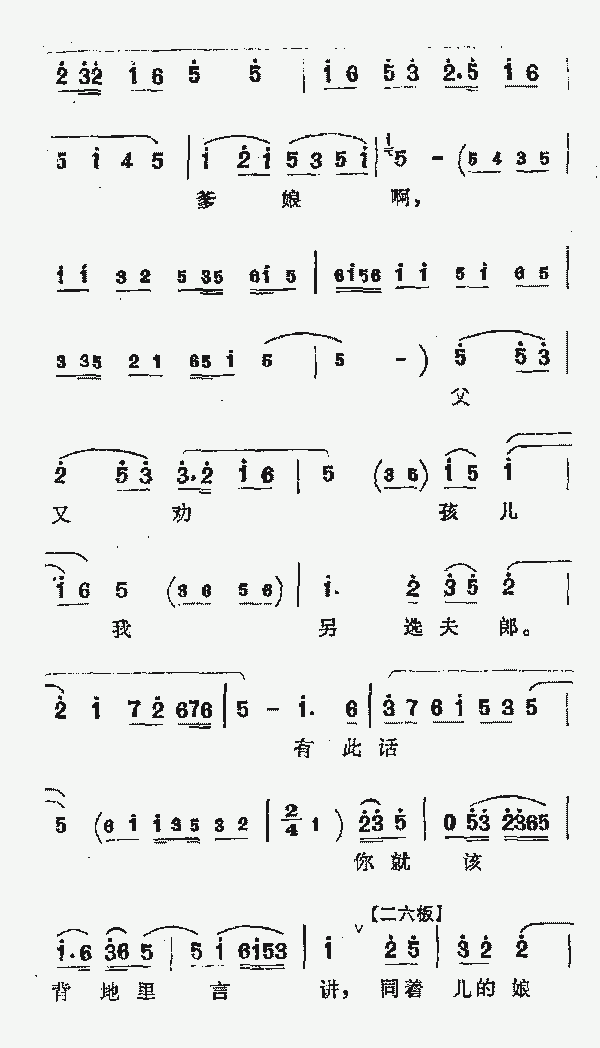 2 32 1 6 5 5 | 1 6 5 3 2·5 1 6 |
5 1 4 5 | 1 2 1 5 3 5 1 | 1 5 - (5 4 3 5
爹 娘 啊，
1 1 3 2 5 35 61 5 | 6156 1 1 5 1 6 5 |
3 35 2 1 65 1 5 | 5 - ) 5 5 3 |
父
2 5 3 3·2 1 6 | 5 (3 5) 1 5 1 |
又 劝 孩 儿
1 6 5 (3 6 5 6) | 1· 2 3 5 2 |
我 另 选 夫 郎。
2 1 7 2 676 | 5 - 1· 6 | 3 7 6 1 5 3 5 |
有 此 话
5 (6 1 1 3 5 3 2 | 2/4 1 ) 23 5 | 0 53 2365 |
你 就 该
【二六板】
1·6 36 5 | 5 1 6153 | 1 ∨ 2 5 | 3 2 2 |
背 地 里 言 讲， 同 着 儿 的 娘